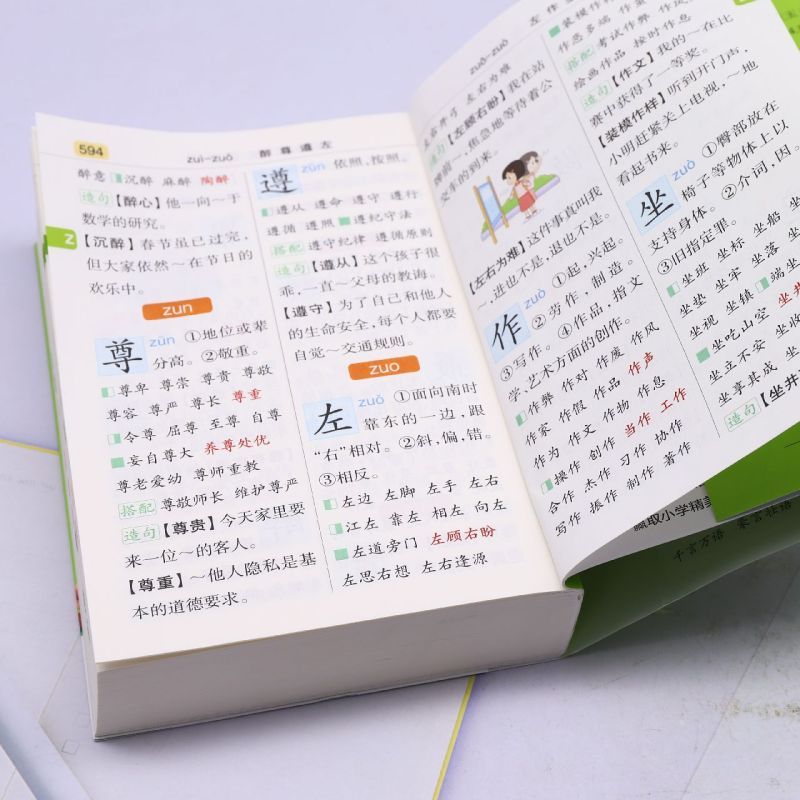 594
zuì-zuǒ 醉尊遵左
醉意 沉醉 麻醉 陶醉
造句【醉心】他一向～于
数学的研究。
Z
【沉醉】春节虽已过完，
但大家依然～在节日的
欢乐中。
zun
尊 zūn ①地位或辈
分高。②敬重。
尊卑 尊崇 尊贵 尊敬
尊容 尊严 尊长 尊重
令尊 屈尊 至尊 自尊
妄自尊大 养尊处优
尊老爱幼 尊师重教
搭配 尊敬师长 维护尊严
造句【尊贵】今天家里要
来一位～的客人。
【尊重】～他人隐私是基
本的道德要求。
遵 zūn 依照，按照。
遵从 遵命 遵守 遵行
遵循 遵照 遵纪守法
搭配 遵守纪律 遵循原则
造句【遵从】这个孩子很
乖，一直～父母的教诲。
【遵守】为了自己和他人
的生命安全，每个人都要
自觉～交通规则。
zuo
左 zuǒ ①面向南时
靠东的一边，跟
“右”相对。②斜，偏，错。
③相反。
左边 左脚 左手 左右
江左 靠左 相左 向左
左道旁门 左顾右盼
左思右想 左右逢源
zuǒ-zuò 左作
左右开弓 左右为难
造句【左顾右盼】我在站
牌前～，焦急地等待着公
交车的到来。
【左右为难】这件事真叫我
～，进也不是，退也不是。
作 zuò ①起，兴起。
②劳作，制造。
③写作。④作品，指文
学、艺术方面的创作。
作弊 作对 作废 作风
作家 作假 作品 作声
作为 作文 作物 作息
操作 创作 当作 工作
合作 杰作 习作 协作
写作 振作 制作 著作
装模作样
作恶多端
搭配 考试作弊
绘画作品 按时作息
造句【作文】我的～在比
赛中获得了一等奖。
【装模作样】听到开门声，
小明赶紧关上电视，～地
看起书来。
坐 zuò ①臀部放在
椅子等物体上以
支持身体。②介词，因。
③旧指定罪。
坐班 坐标 坐禅
坐垫 坐牢 坐落
坐视 坐镇
坐吃山空
坐立不安
坐享其成
造句【坐井
赢取小学精
千言万语